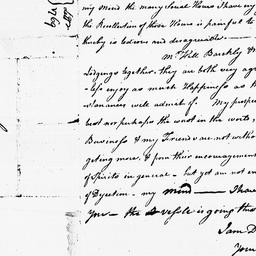 my mind the many social Hours I have
the Recollection of those Hours is painful to
thereby is tedious and disagreeable
Mr. Will Barkly &
Lodgings together. they are both very
life enjoy as much Happiness as
will admit of. My prospects
best nor perhaps the worst in the world,
Business & my Friends are not with
geting more. & from their encouragement
of Spirits in general - but yet am not
of Dejection - my mind — I have
you - the Vessle is going
I am
Your